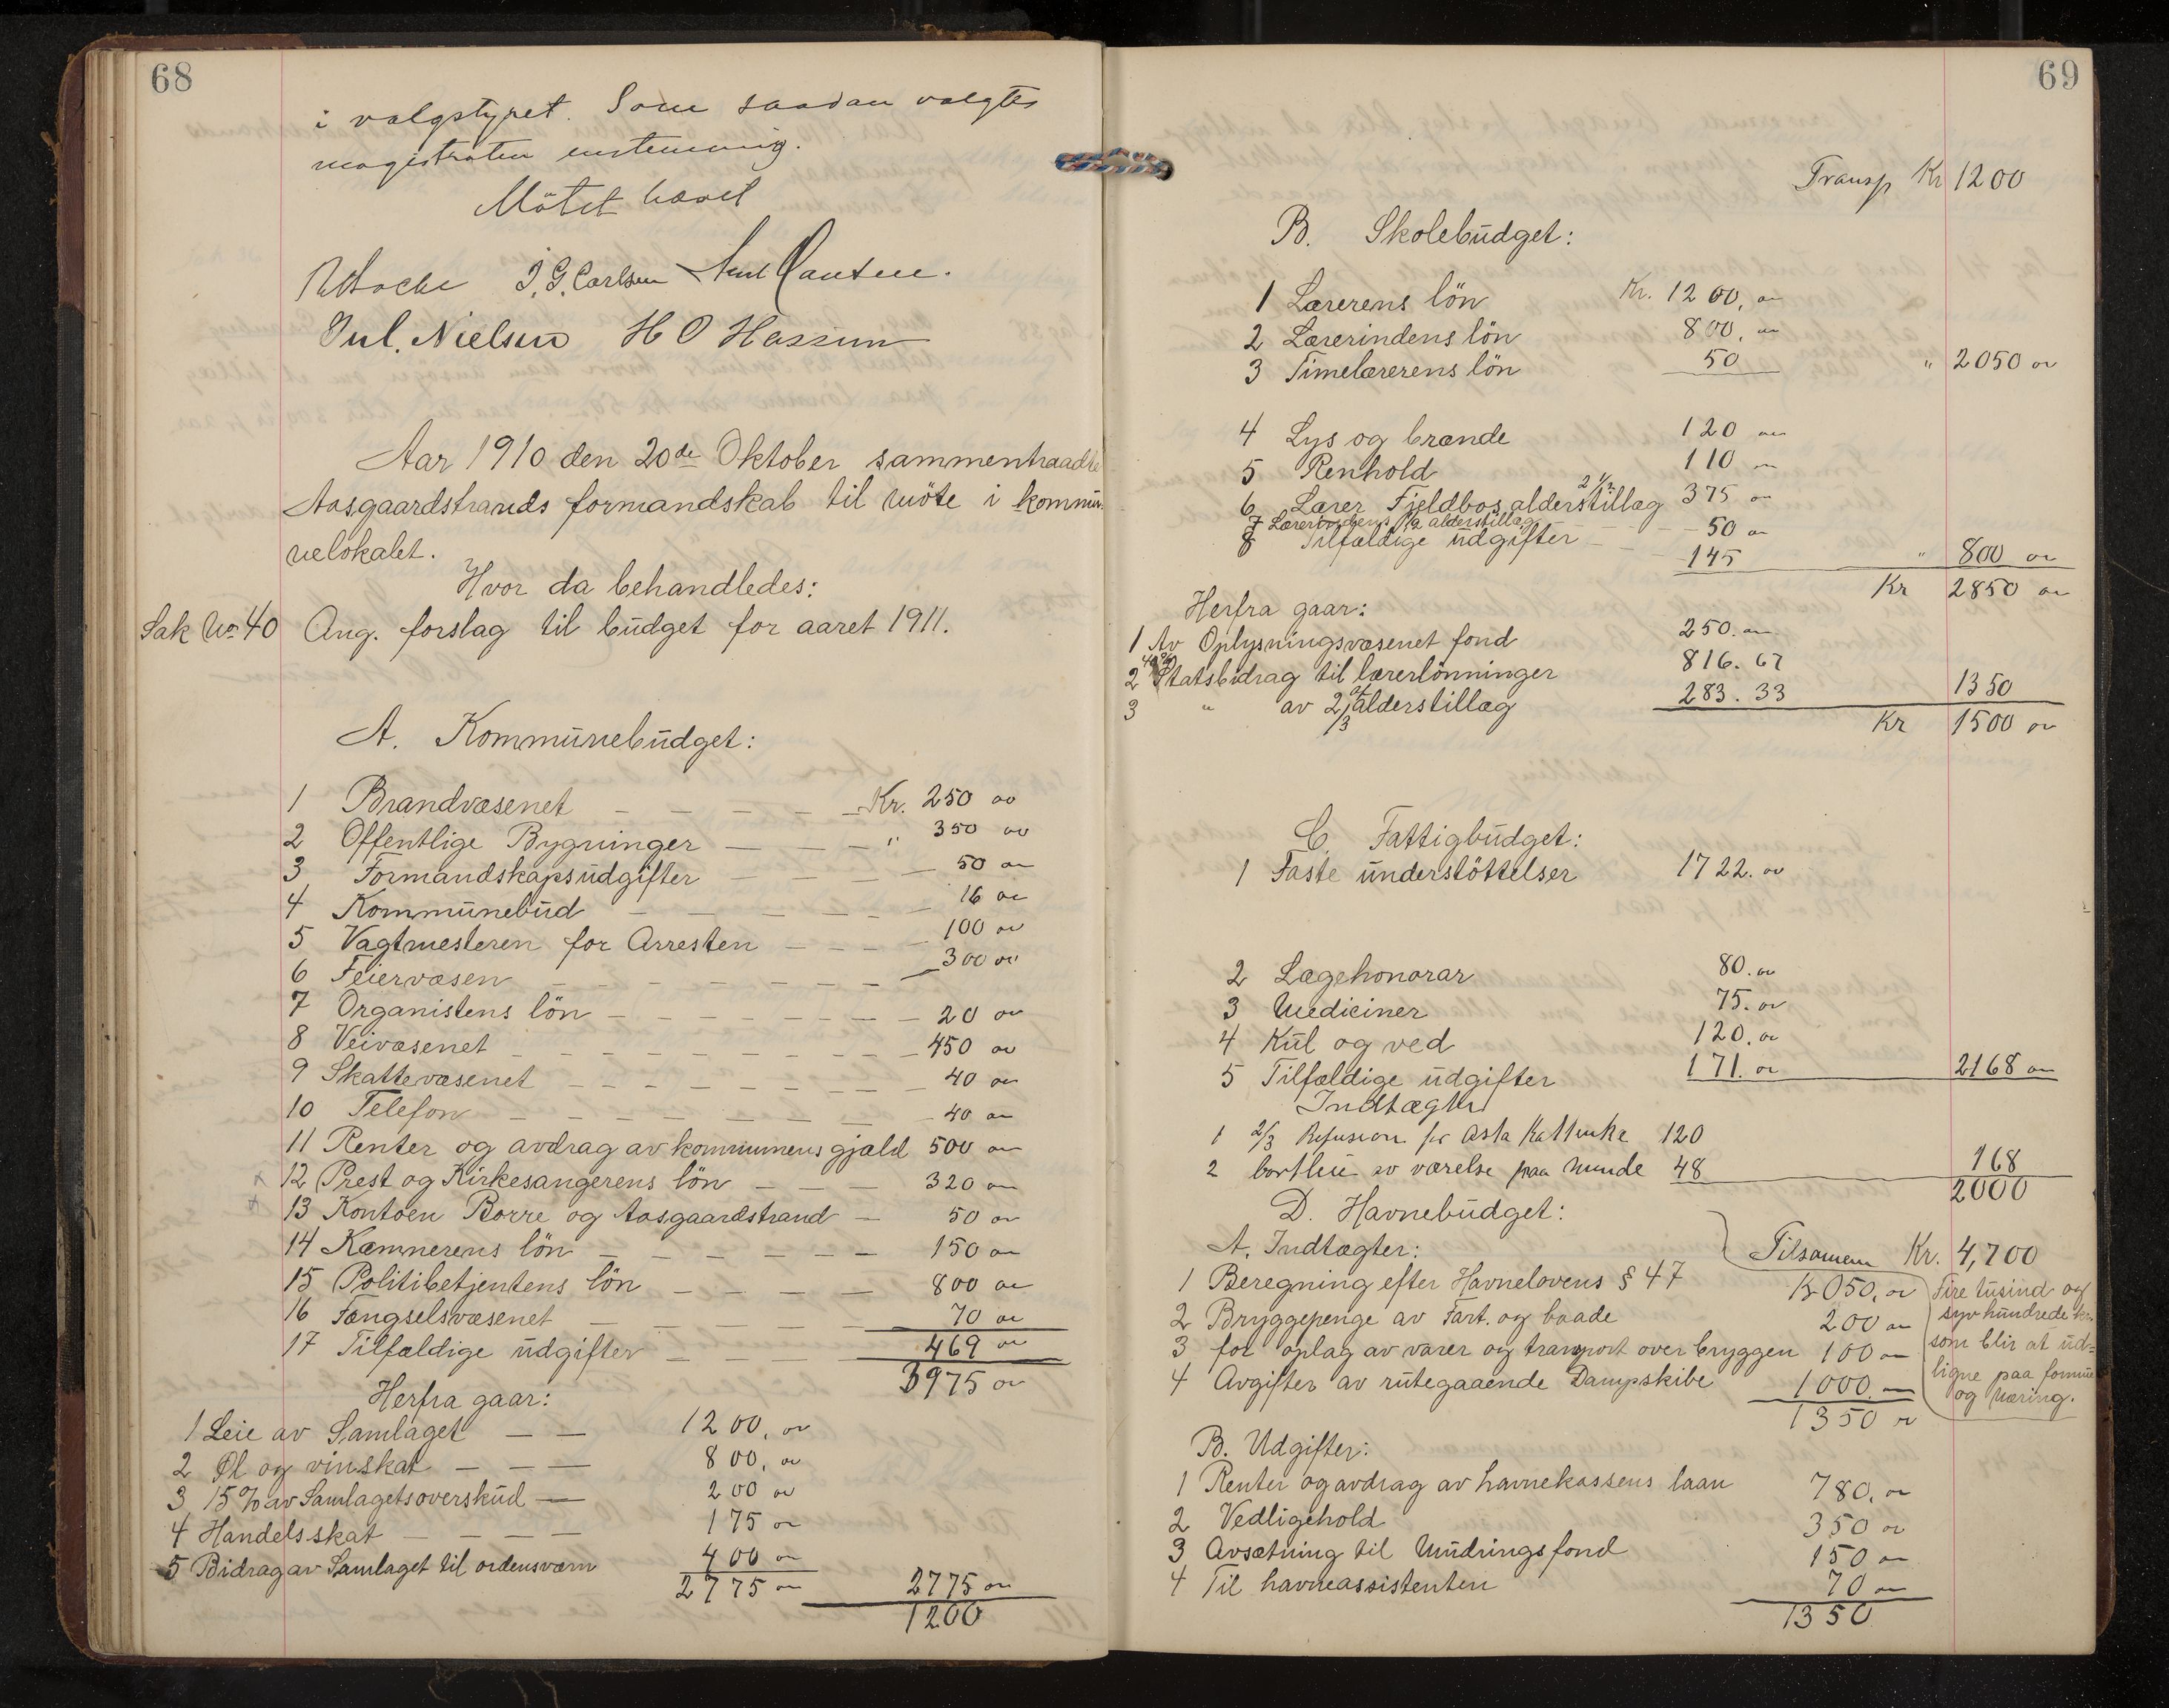 68
i valgstyret. Som saadan valgtes
magistraten enstemmig.
Mötet hævet
J. G. Carlsen
Jul. Nielsen H O Hassum
Aar 1910 den 20de Oktober sammentraadte
Aasgaardstrands formandskab til möte i kommu-
nelokalet.
Hvor da behandledes:
Sak No 40 Ang. forslag til budget for aaret 1911.
A. Kommunebudget:
1 Brandvæsenet Kr. 250 oo
2 Offentlige Bygninger " 350 oo
3 Formandskapsudgifter 50 oo
4 Kommunebud 16 oo
5 Vagtmesteren for Arresten 100 oo
6 Feiervæsen 300 oo
7 Organistens lön 20 oo
8 Veivæsenet 450 oo
9 Skattevæsenet 40 oo
10 Telefon 40 oo
11 Renter og avdrag av kommunens gjæld 500 oo
12 Prest og Kirkesangerens lön 320 oo
13 Kontoen Borre og Aasgaardstrand 50 oo
14 Kæmnerens lön 150 oo
15 Politibetjentens lön 800 oo
16 Fængselsvæsenet 70 oo
17 Tilfældige udgifter 469 oo
3975 oo
Herfra gaar:
1 Leie av Samlaget 1200, oo
2 Øl og vinskat 800, oo
3 15% av Samlagets overskud 200 oo
4 Handelsskat 175 oo
5 Bidrag av Samlaget til ordensværn 400 oo
2775 oo 2775 oo
1200
69
Transp Kr 1200
B. Skolebudget:
1 Lærerens lön Kr. 1200, oo
2 Lærerindens lön 800, oo
3 Timelærerens lön 50 " 2050 oo
4 Lys og brænde 120 oo
5 Renhold 110 oo
6 Lærer Fjeldbos alderstillæg 375 oo
7 alderstillæg 50 oo
8 Tilfældige udgifter 145 " 800 oo
Kr 2850 oo
Herfra gaar:
1 Av Oplysningsvæsenet fond 250. oo
2 Statsbidrag til lærerlönninger 816. 67
3 " av 2/3 alderstillæg 283. 33 1350
Kr 1500 oo
C. Fattigbudget:
1 Faste understöttelser 1722. oo
2 Lægehonorar 80. oo
3 Mediciner 75. oo
4 Kul og ved 120. oo
5 Tilfældige udgifter 171. oo 2168 oo
Indtægter
1 2/3 Refusion for Asta 120
2 bortleie av værelse paa 48 168
2000
D. Havnebudget:
Tilsamen Kr. 4,700
Fire tusind og
syv hundrede kr.
som blir at ud-
ligne paa formue
og næring.
A. Indtægter:
1 Beregning efter Havnelovens § 47 Kr 050, oo
2 Bryggepenge av Fart. og baade 200 oo
3 for oplag av varer og transport over bryggen 100 oo
4 Avgifter av rutegaaende Dampskibe 1000 oo
1350 oo
B. Udgifter:
1 Renter og avdrag av havnekassens laan 780, oo
2 Vedligehold 350 oo
3 Avsætning til Mudringsfond 150 oo
4 Til havneassistenten 70 oo
1350